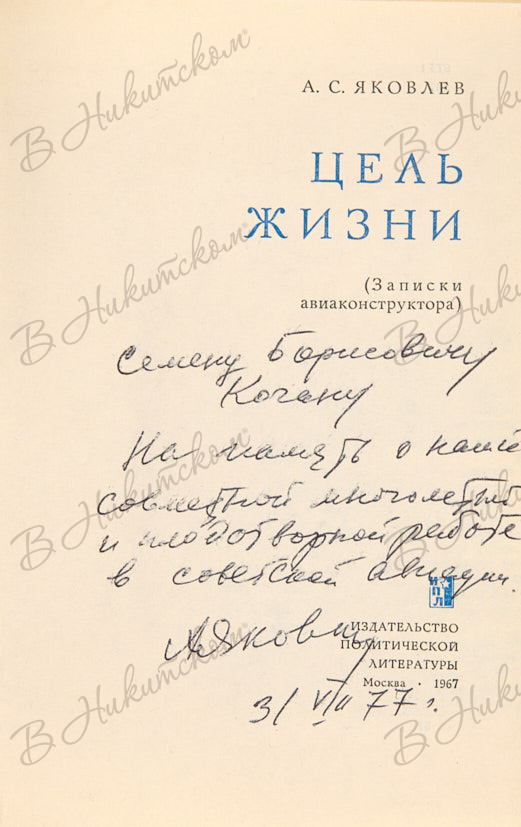 А. С. ЯКОВЛЕВ
ЦЕЛЬ
ЖИЗНИ
(Записки
авиаконструктора)
Семену Борисовичу
Когану
На память о нашей
совместной многолетней
и плодотворной работе
в советской авиации.
АЯковлев
ИЗДАТЕЛЬСТВО
ПОЛИТИЧЕСКОЙ
ЛИТЕРАТУРЫ
Москва · 1967
3/VIII 77 г.
В Никитском
В Никитском
В Никитском
В Никитском
В Никитском
В Никитском
В Никитском
В Никитском